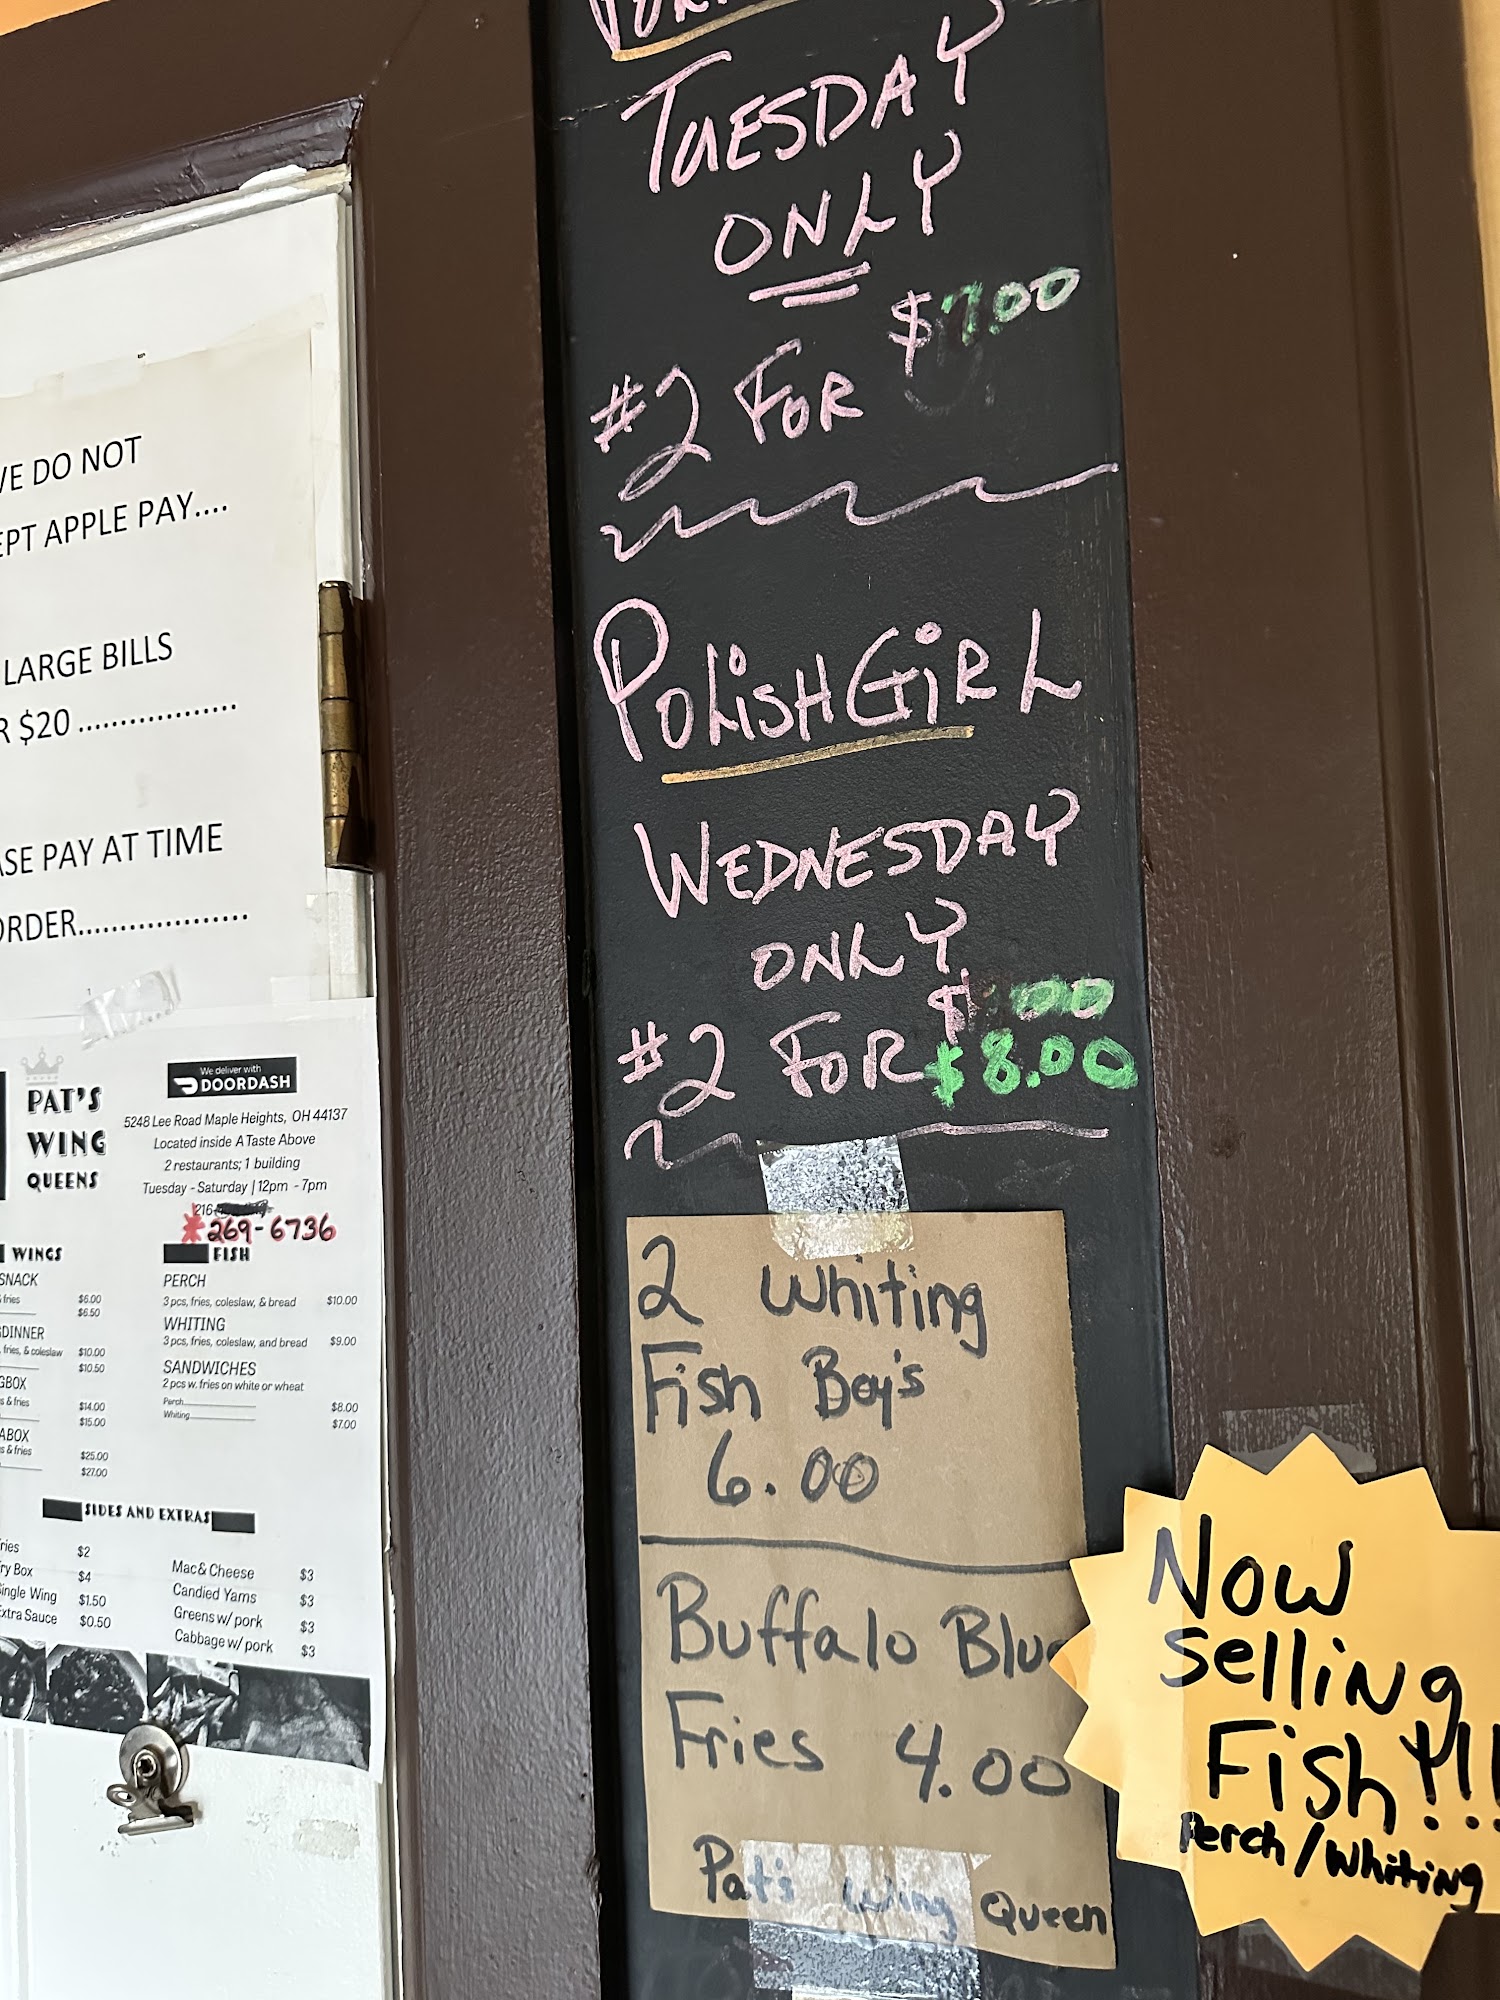 TUESDAY
ONLY
$7.00
#2 FOR
POLISH GIRL
WEDNESDAY
ONLY
#2 FOR $8.00
2 Whiting
Fish Boy's
6.00
Buffalo Blu
Fries 4.00
Pat's Wing Queen
Now
selling
Fish!!!
Perch/Whiting
WE DO NOT
EPT APPLE PAY....
LARGE BILLS
R $20 ...................
ASE PAY AT TIME
ORDER...................
PAT'S
WING
QUEENS
We deliver with
DOORDASH
5248 Lee Road Maple Heights, OH 44137
Located inside A Taste Above
2 restaurants; 1 building
Tuesday - Saturday | 12pm - 7pm
216
*269-6736
WINGS
SNACK
fries $6.00
$6.50
DINNER
, fries, & coleslaw $10.00
$10.50
GBOX
s & fries $14.00
$15.00
ABOX
s & fries $25.00
$27.00
FISH
PERCH
3 pcs, fries, coleslaw, & bread $10.00
WHITING
3 pcs, fries, coleslaw, and bread $9.00
SANDWICHES
2 pcs w. fries on white or wheat
Perch $8.00
Whiting $7.00
SIDES AND EXTRAS
ries $2
ry Box $4
ingle Wing $1.50
xtra Sauce $0.50
Mac & Cheese $3
Candied Yams $3
Greens w/ pork $3
Cabbage w/ pork $3